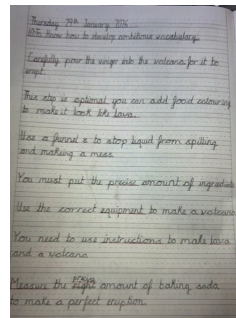 Thursday 29th January 2026
WALT: Know how to develop ambitious vocabulary.
Carefully pour the vinegar into the volcano for it to
erupt.
This step is optional you can add food colouring
to make it look like lava.
Use a funnel s to stop liquid from spilling
and making a mess.
You must put the precise amount of ingredients
Use the correct equipment to make a volcano
You need to use instructions to make lava
and a volcano
Measure the amount of baking soda
to make a perfect eruption.